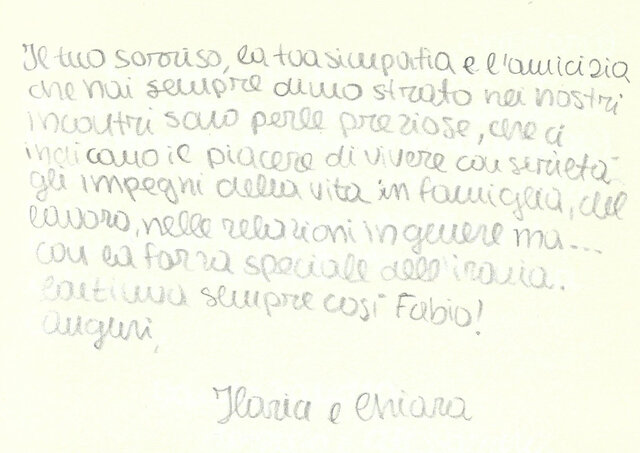 Il tuo sorriso, la tua simpatia e l'amicizia
che hai sempre dimostrato nei nostri
incontri sono perle preziose, che ci
indicano il piacere di vivere con serietà
gli impegni della vita in famiglia, del
lavoro, nelle relazioni in genere ma...
con la forza speciale dell'ironia.
Continua sempre così Fabio!
Auguri,
Ilaria e Chiara